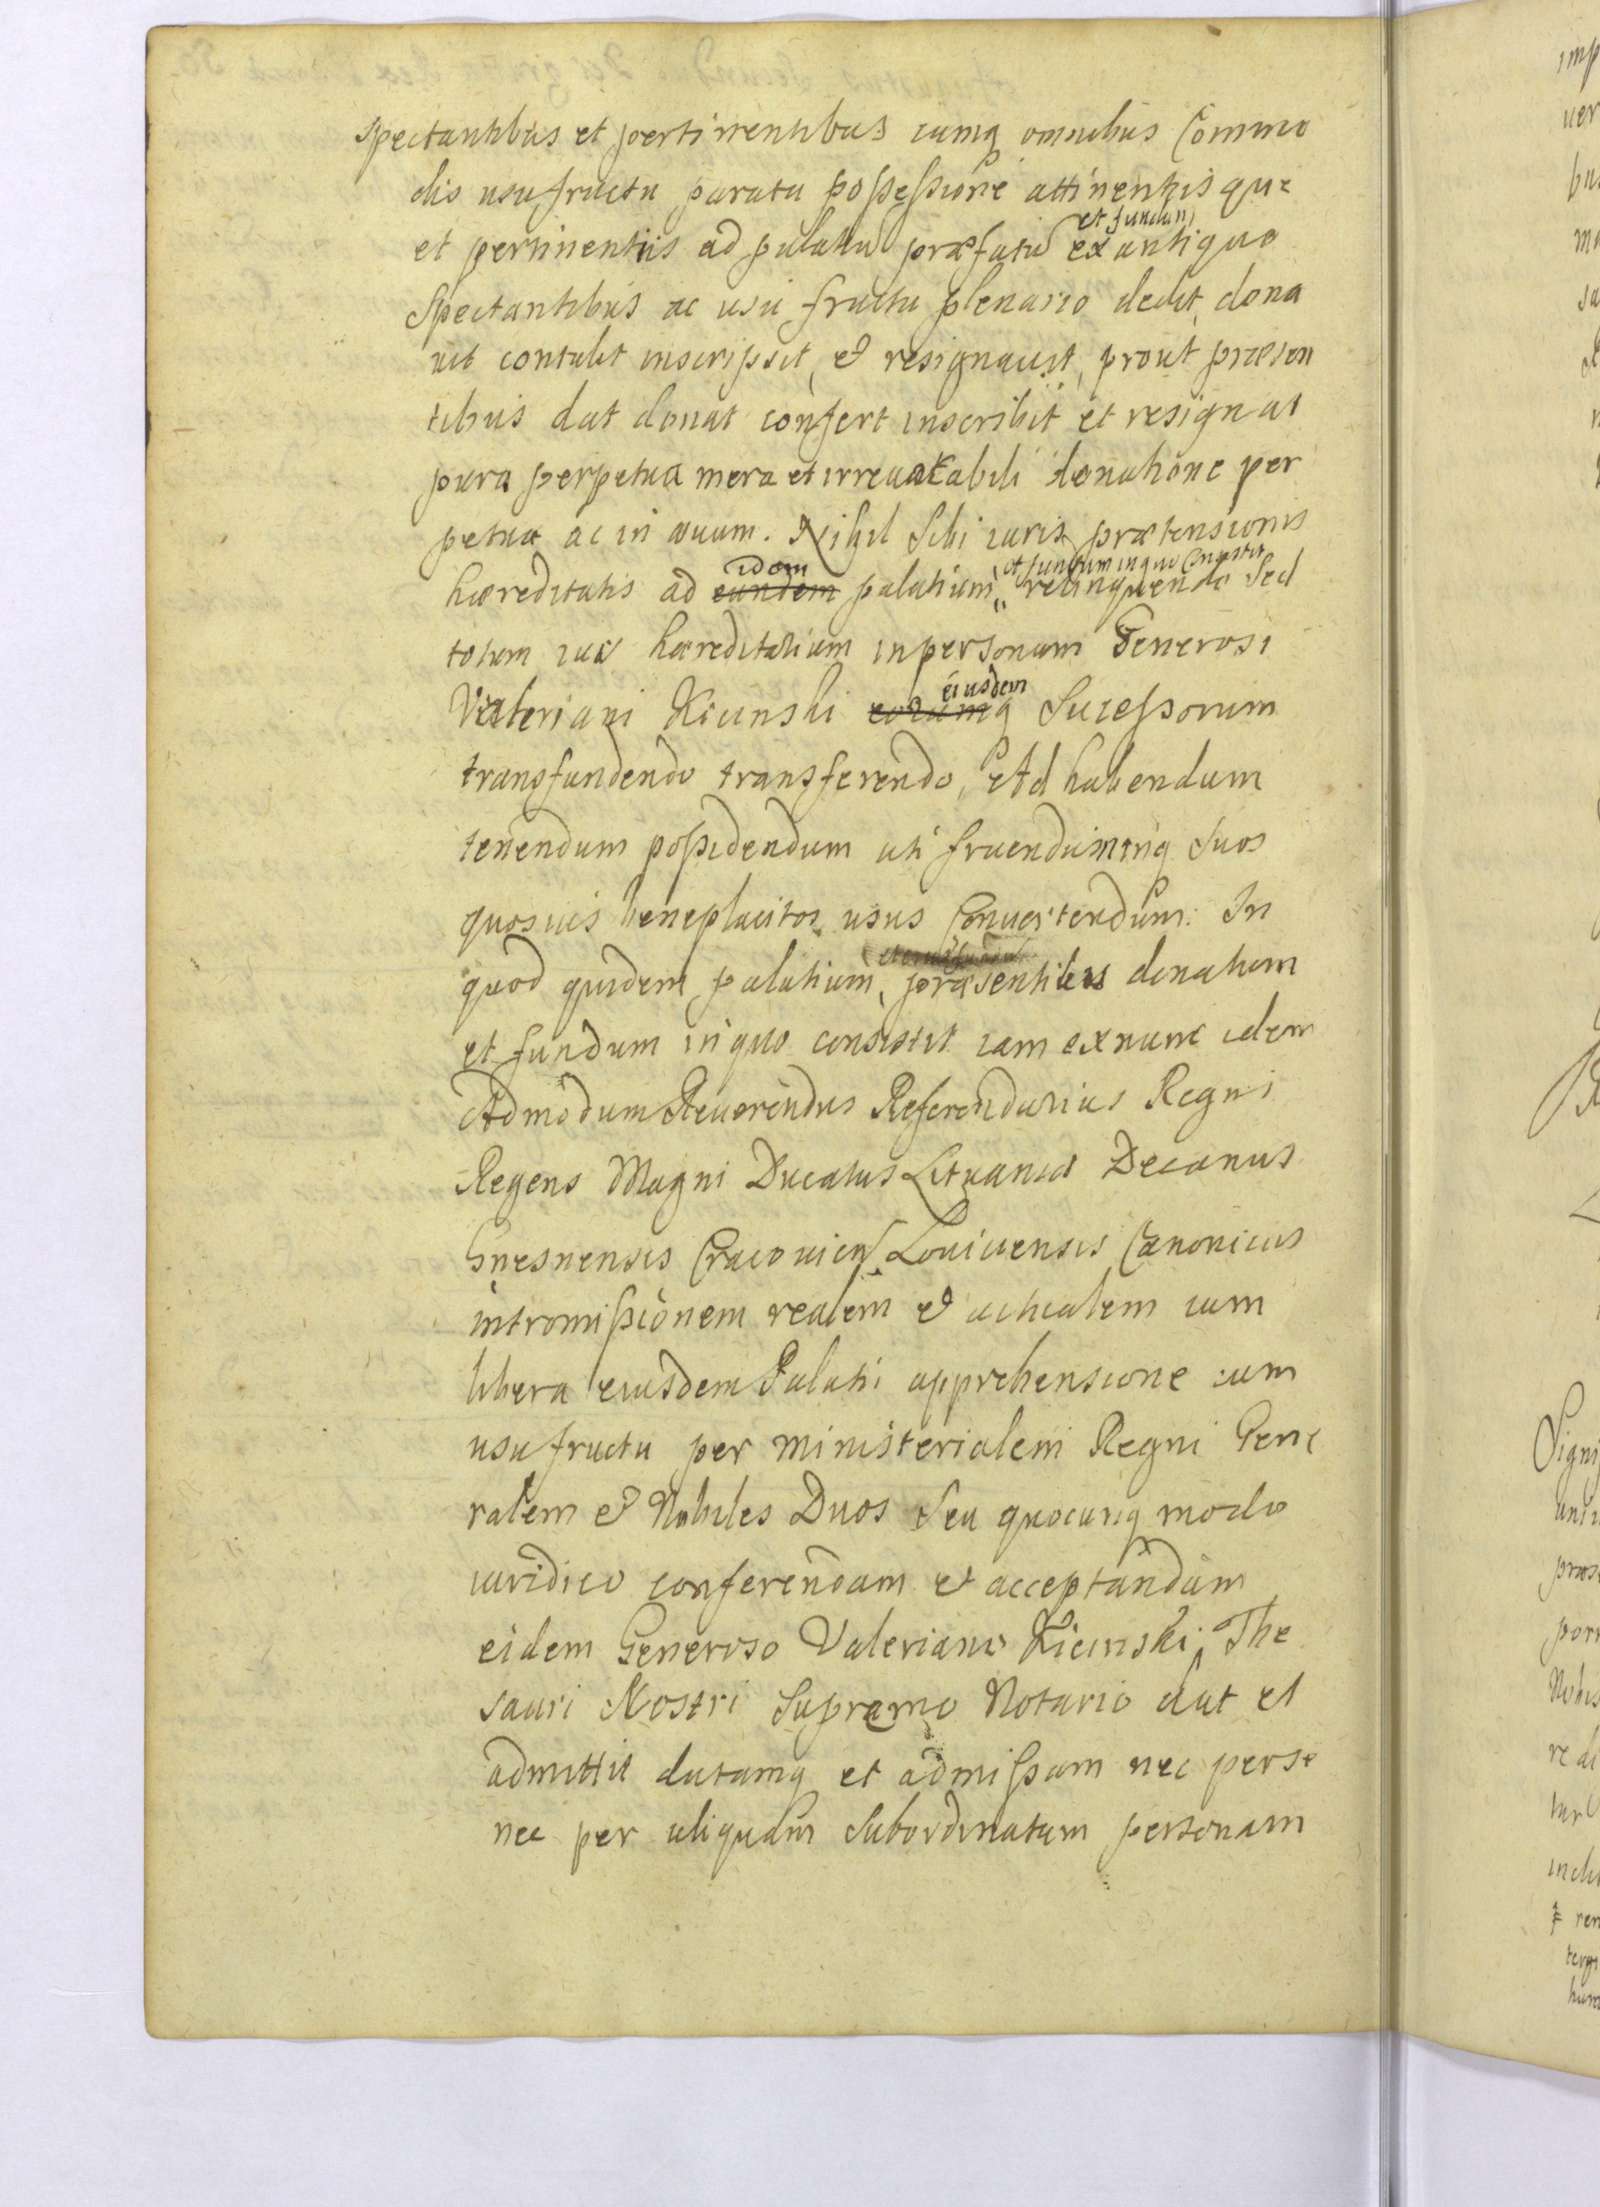 spectantibus et pertinentibus cumq omnibus Commo
dis usufructu paratu possessione attinentijs que
et fundum
et pertinentiis ad palatiu præfatu ex antiquo
Spectantibus ac usu fructu plenario dedit, dona
vit contulit inscripsit, et resignauit, prout præsen
tibus dat donat confert inscribit et resignat
pura perpetua mera et irreuocabili donatione per
petua ac in æuum. Nihil Sibi iuris prætensionis
idem et fundum in quo Consistit
hæreditatis ad eundem palatium, relinquendo Sed
totum ius hæreditarium in personam Generosi
eiusdem
Valeriani Kicinski eorumq Sucessorum
transfundendo transferendo, Ad habendum
tenendum possidendum uti fruendum inq Suos
quosuis beneplacitos usus Conuertendum. In
quod quidem palatium, præsentibus donatum
et fundum in quo consistit iam ex nunc idem
Admodum Reuerendus Referendarius Regni
Regens Magni Ducatus Lituaniæ Decanus
Gnesnensis Cracouien Louicensis Canonicus
intromissionem realem et actualem cum
libera eiusdem Palatii apprehensione cum
usufructu per ministerialem Regni Gene
ralem et Nobiles Duos Seu quocunq modo
iuridico conferendam et acceptandam
eidem Generoso Valeriano Kicinski, The
sauri Nostri Supremo Notario dat et
admittit datamq et admissam nec per se
nec per aliquam Subordinatam personam